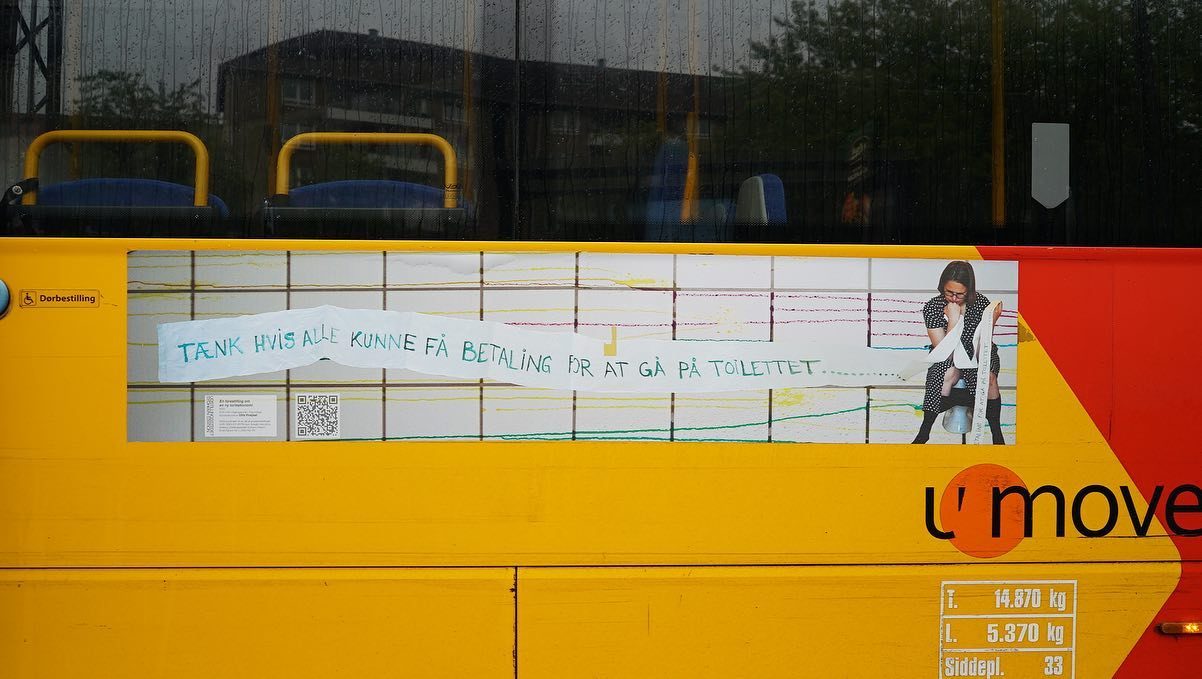 Dørbestilling
TÆNK HVIS ALLE KUNNE FÅ BETALING FOR AT GÅ PÅ TOILETTET...........
En forestilling om
en ny
u'move
T. 14.870 kg
L. 5.370 kg
Siddepl. 33